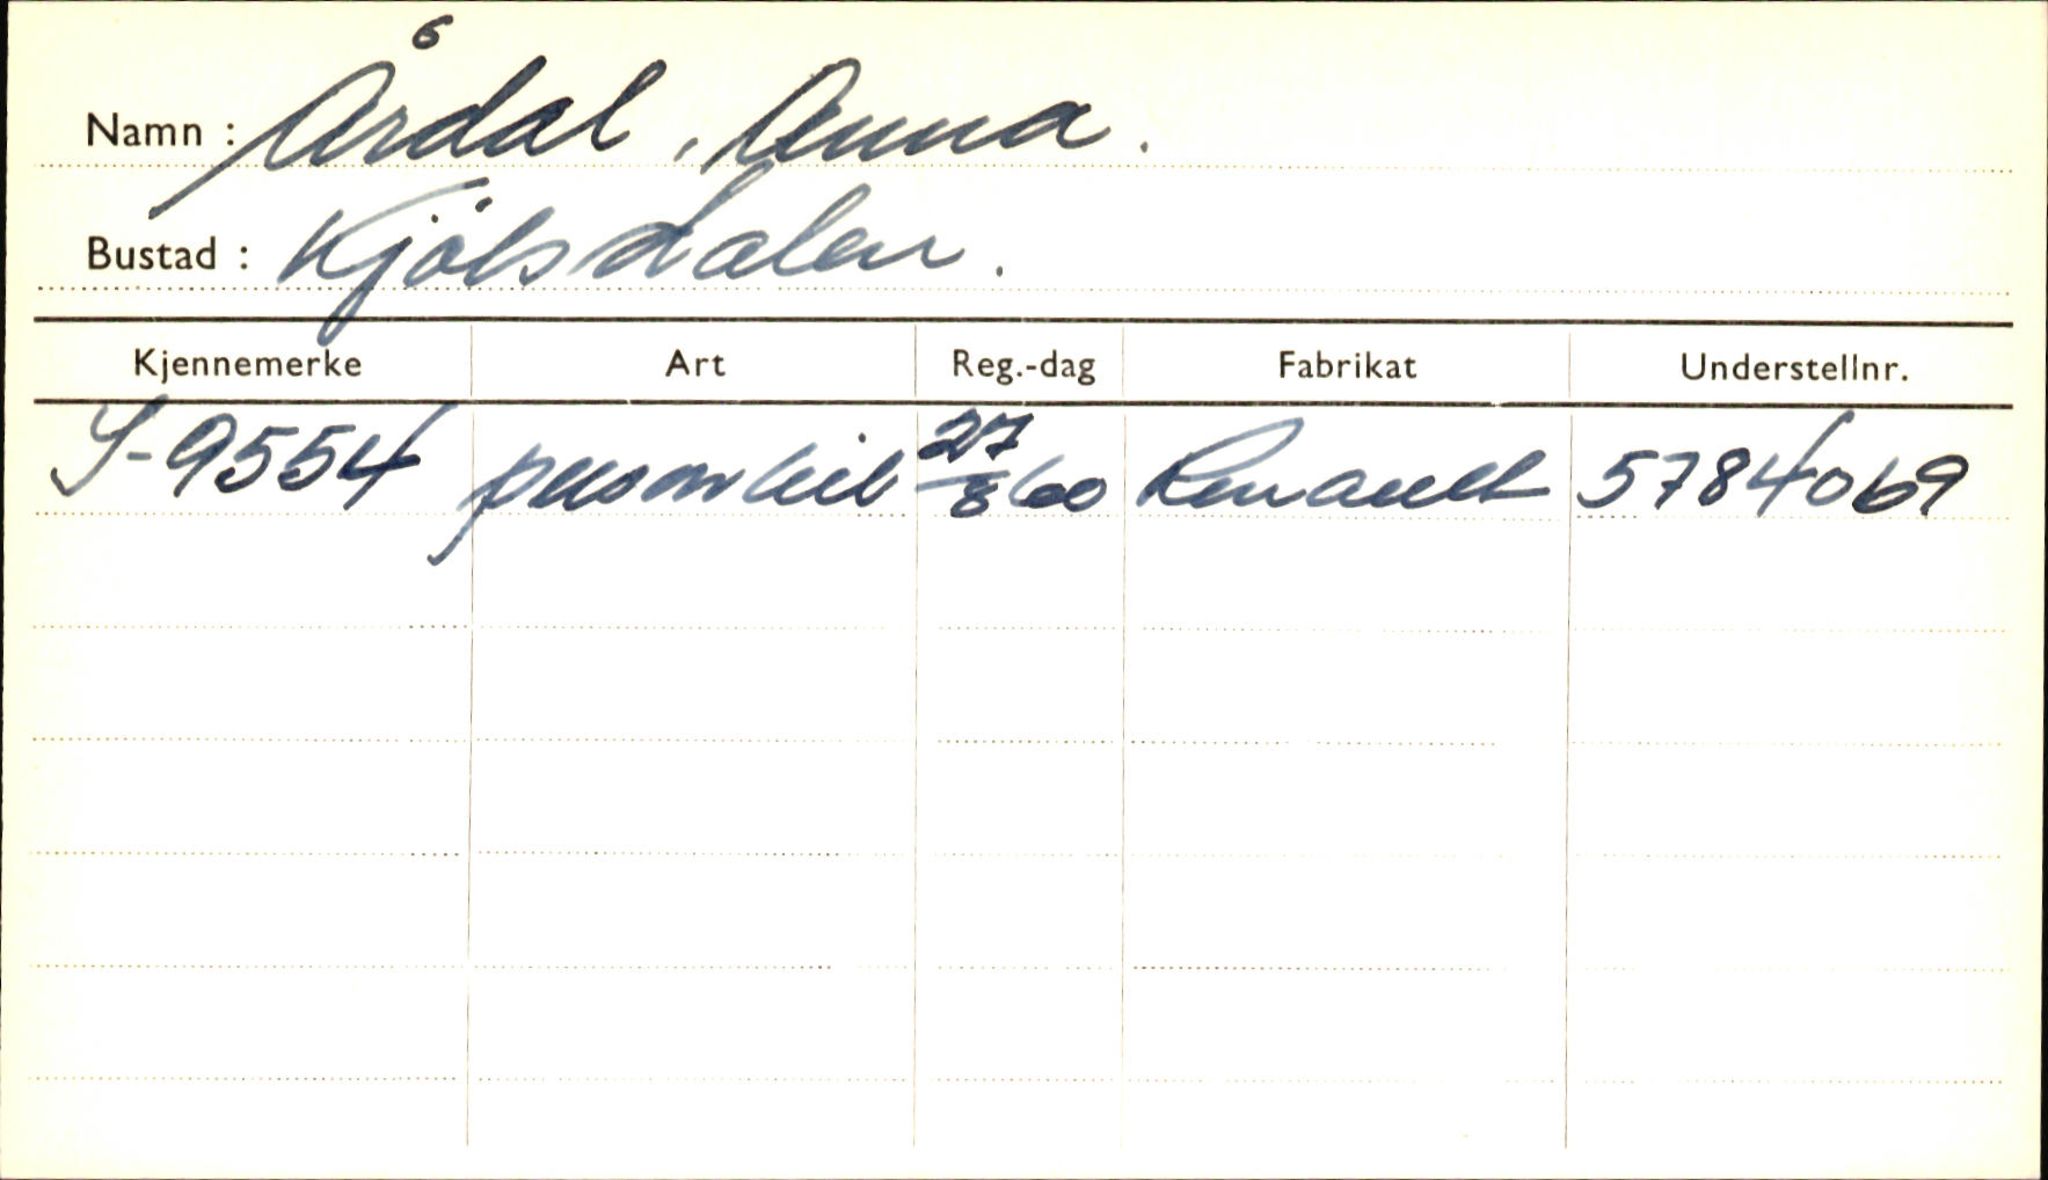 Namn : Årdal, Anna.
Bustad : Kjölsdalen.
Kjennemerke Art Reg.-dag Fabrikat Understellnr.
S-9554 personbil 27/8 60 Renault 5784069